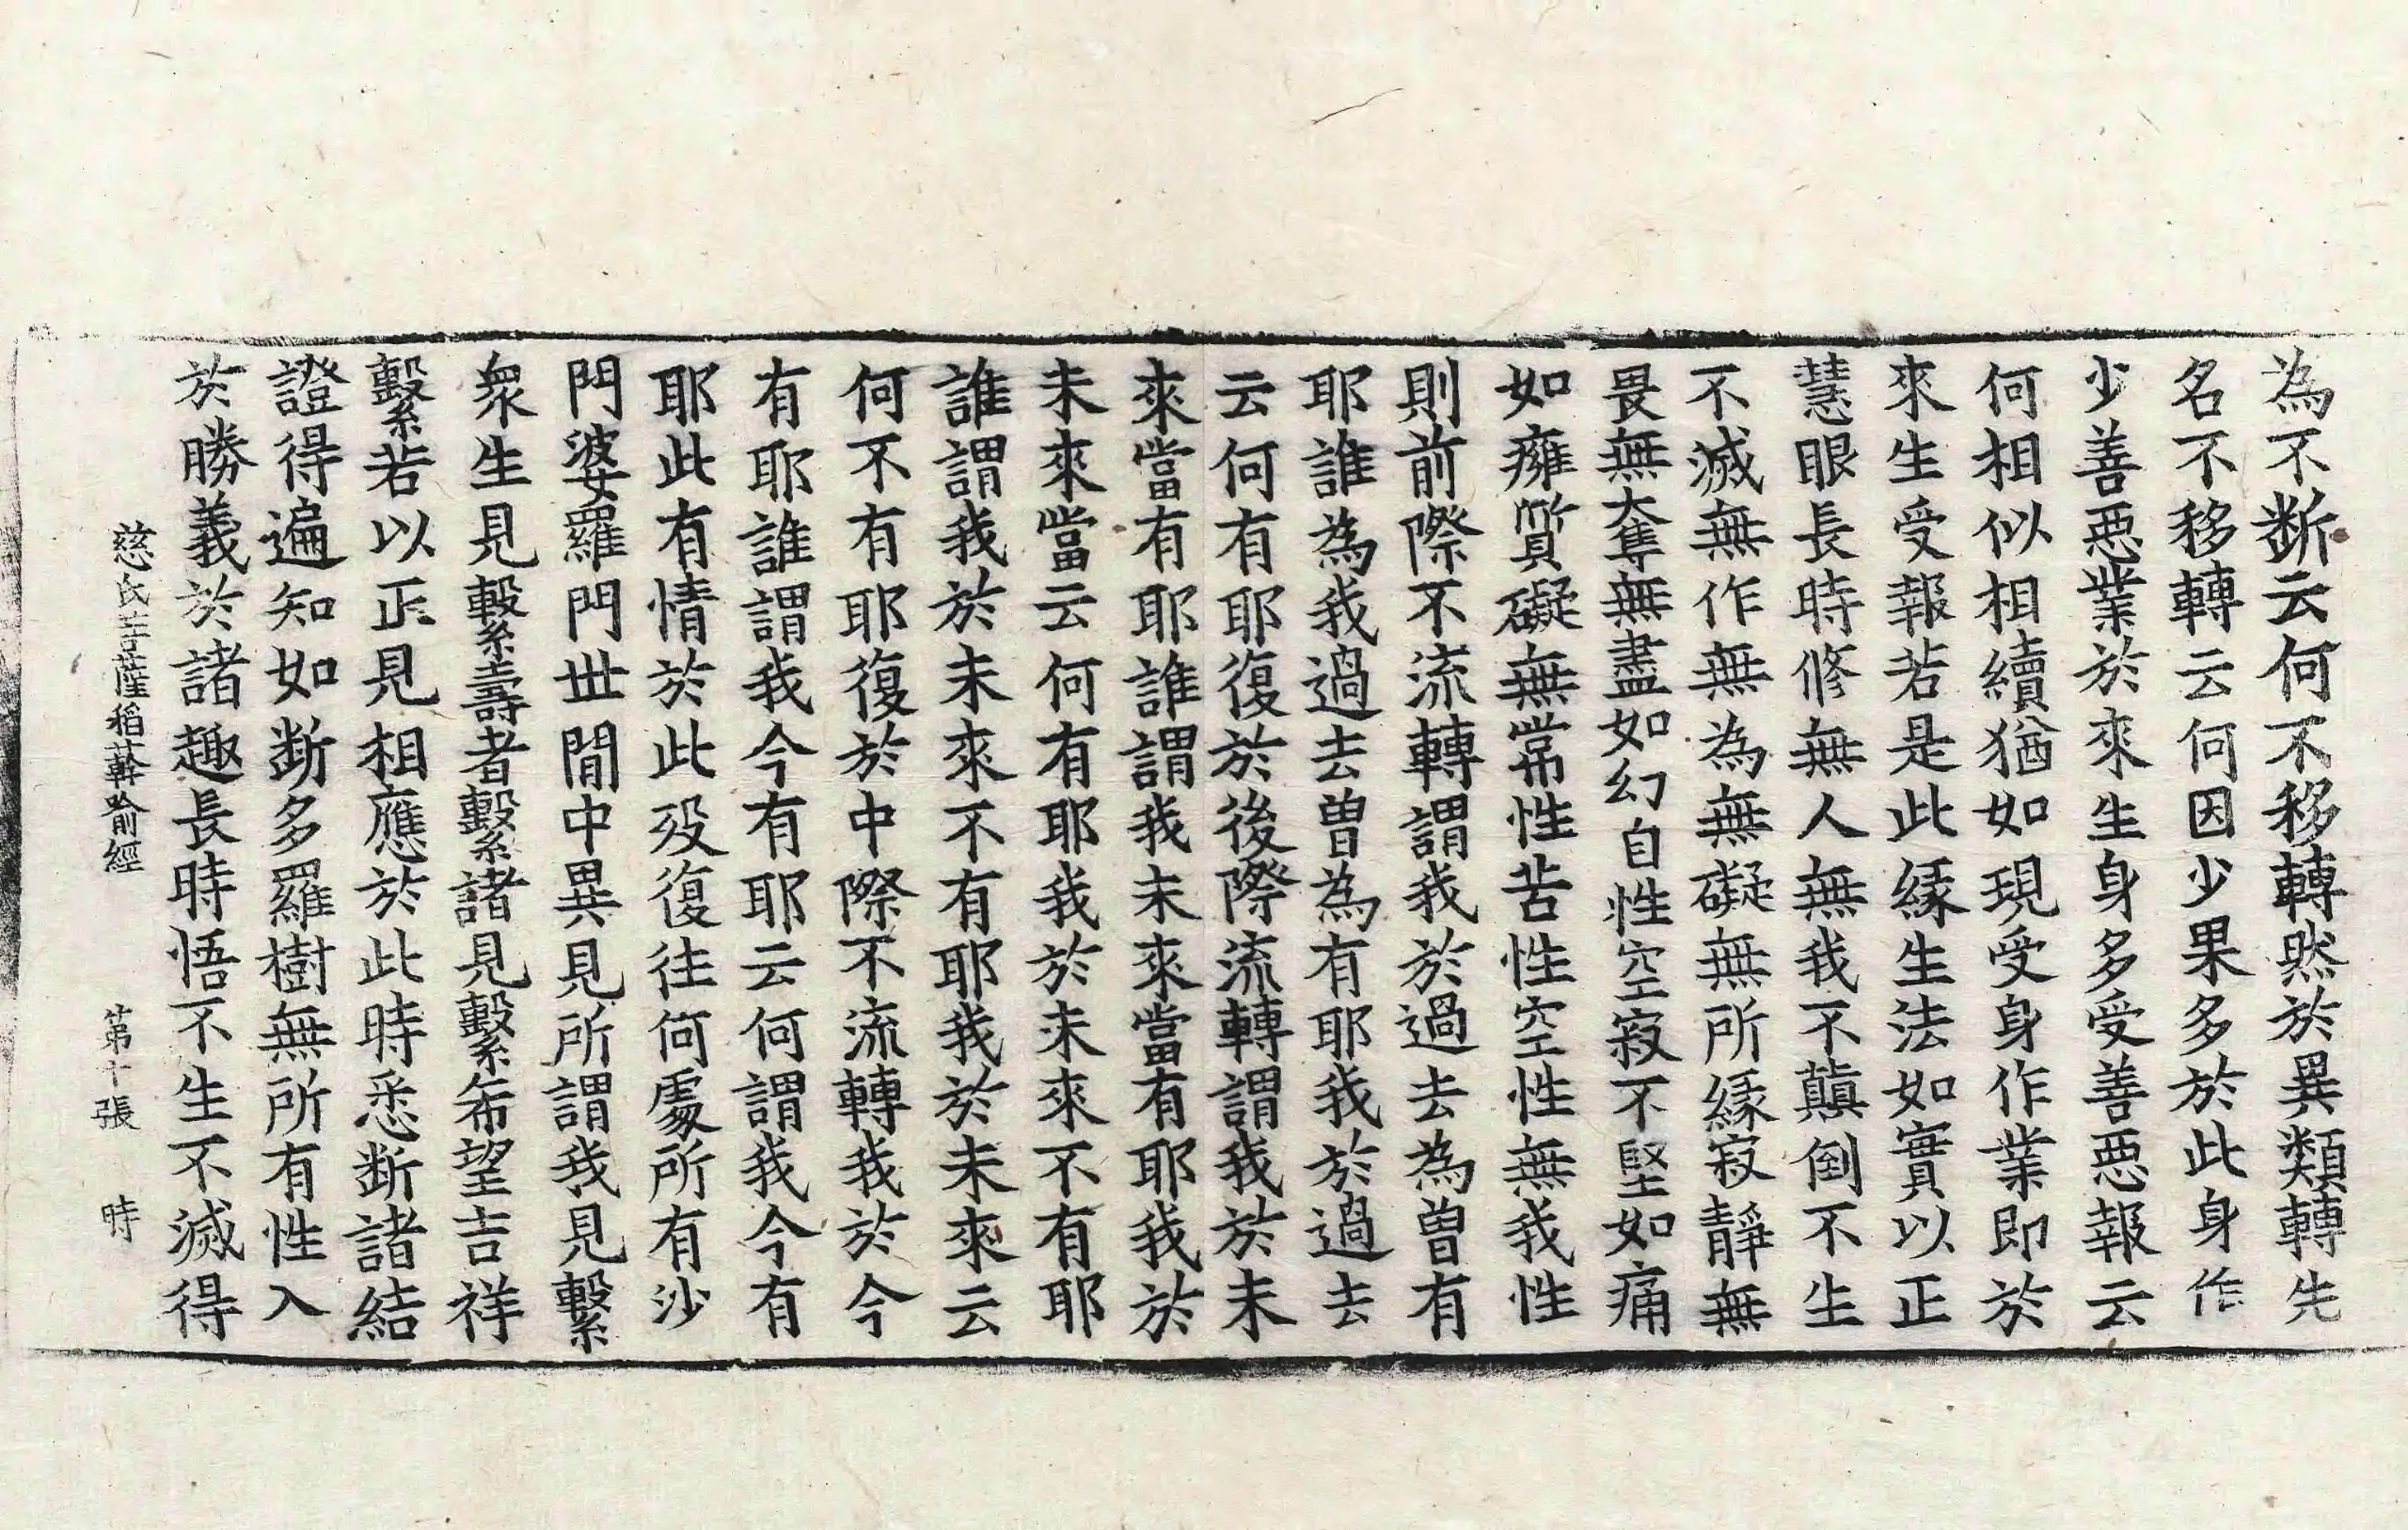 為不断云何不移轉然於異類轉先
名不移轉云何因少果多於此身作
少善惡業於來生身多受善惡報云
何相似相續猶如現受身作業即於
來生受報若是此緣生法如實以正
慧眼長時修無人無我不顛倒不生
不滅無作無為無礙無所緣寂靜無
畏無奪無盡如幻自性空寂不堅如痛
如癰質礙無常性苦性空性無我性
則前際不流轉謂我於過去為曾有
耶誰為我過去曾為有耶我於過去
云何有耶復於後際流轉謂我於未
來當有耶誰謂我未來當有耶我於
未來當云何有耶我於未來不有耶
誰謂我於未來不有耶我於未來云
何不有耶復於中際不流轉我於今
有耶誰謂我今有耶云何謂我今有
耶此有情於此歿復往何處所有沙
門婆羅門世間中異見所謂我見繫
衆生見繫壽者繫諸見繫希望吉祥
繫若以正見相應於此時悉断諸結
證得遍知如断多羅樹無所有性入
於勝義於諸趣長時悟不生不滅得
慈氏菩薩稻𦼮喻經 第十張 時